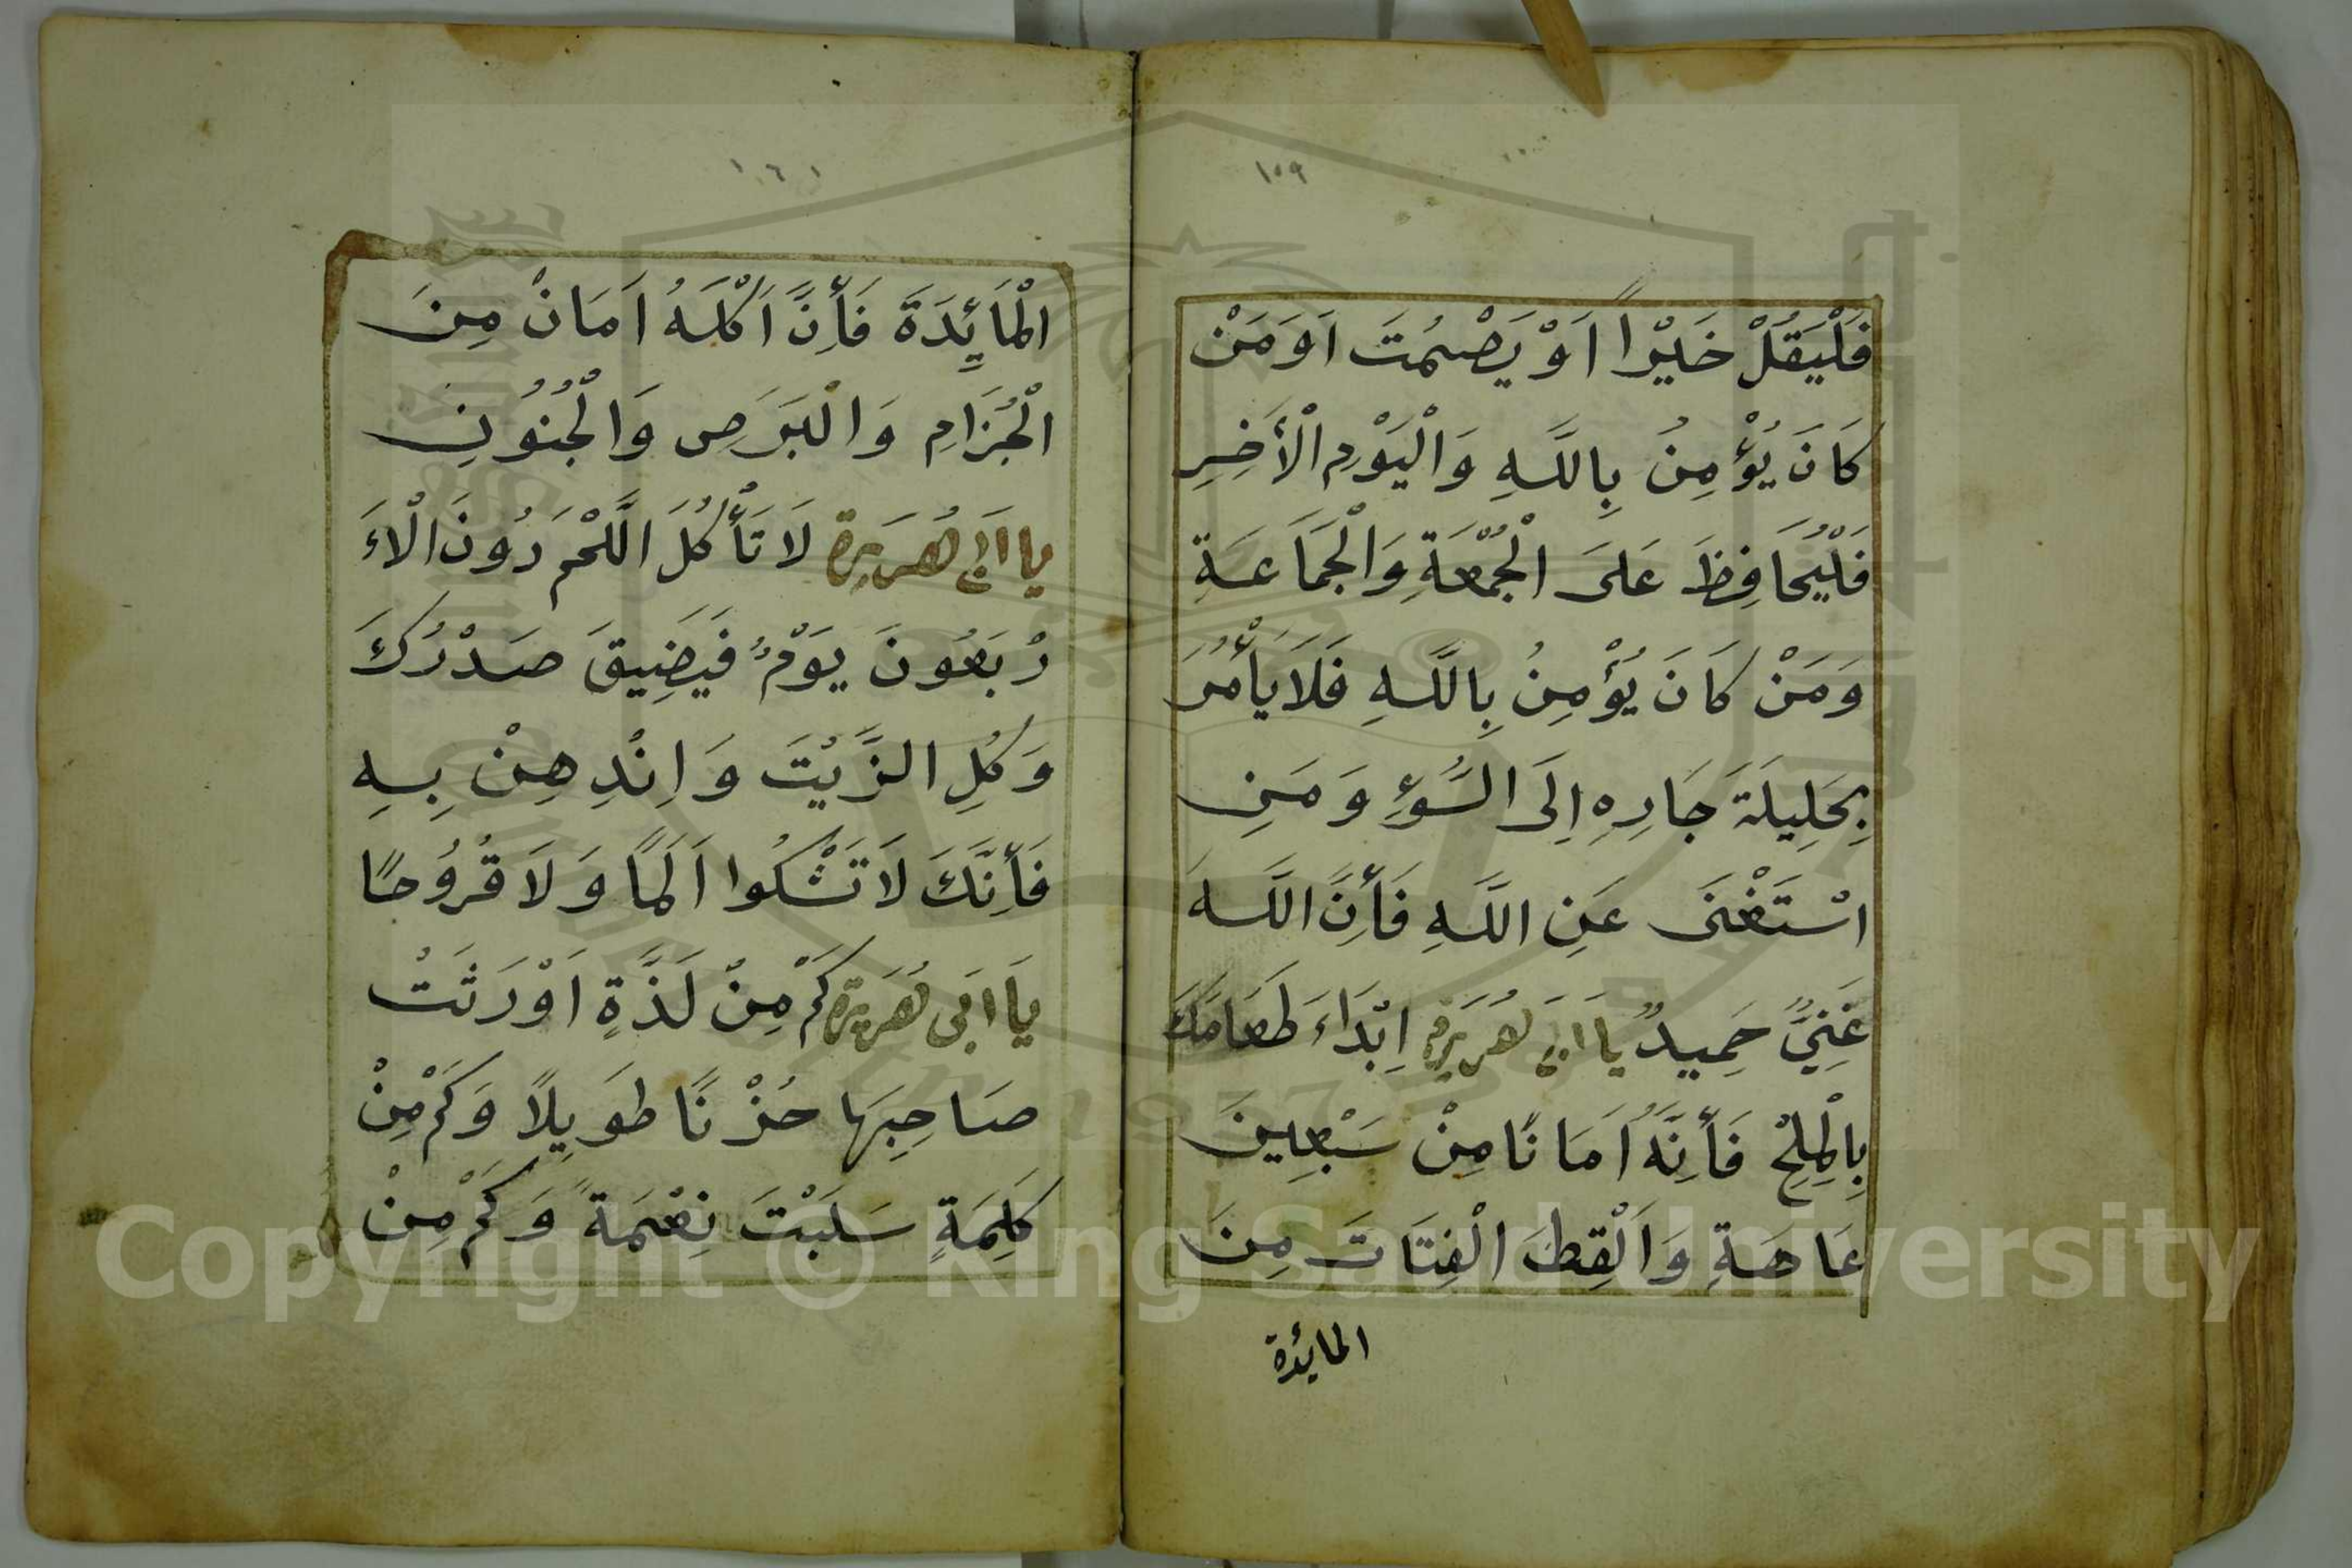 ١٥٩
فَلْيَقُلْ خَيْراً اَوْ يَصْمُتَ اَوَمَنْ
كَانَ يُؤْمِنُ بِاللَّهِ وَالْيَوْمِ الْأَخِرِ
فَلْيُحَافِظَ عَلَى الْجُمْعَةِ وَالْجَمَاعَةِ
وَمَنْ كَانَ يُؤْمِنُ بِاللَّهِ فَلَا يَأْمُرَ
بِحَلِيلَةَ جَارِهِ اِلَى السُّوءِ وَمَنِ
اسْتَغْنَى عَنِ اللَّهِ فَأِنَّ اللَّهَ
غَنِيٌّ حَمِيدٌ يا اَبَى هُرَيْرَة اِبْدَاءَ طَعَامَكَ
بِالْمِلِحْ فَأِنَّهُ اَمَانًا مِنْ سَبْعِينَ
عَاهَةٍ وَالْقِطَ الْفِتَاتَ مِنَ
المايدة
١٦٠
الْمَايِدَةَ فَأِنَّ اَكْلَهُ اَمَانْ مِنَ
الْجُزَامِ وَالْبَرَصِ وَالْجُنُونِ
يا اَبى هُرَيرة لَا تَأْكُلَ اللَّحْمَ دُونَ الْاَ
رْبَعُونَ يَوْمٌ فَيَضِيقَ صَدْرُكَ
وَكُلِ الزَّيْتَ وَانْدِهِنْ بِهِ
فَأِنَّكَ لَا تَشْكُوا اَلَمًا وَلَا قُرُوحًا
يَا ابَى هُرَيرة كَمْ مِنْ لَذَّةٍ اَوْرَثَتْ
صَاحِبَهَا حُزْنًا طَوَيِلاً وَكَمْ مِنْ
كَلِمَةٍ سَلَبَتْ نِعْمَةً وَكَمْ مِنْ
Copyright © King Saud University